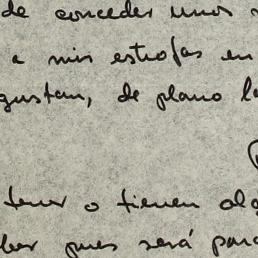 de conceder unos
a mis estrofas en
gustan, de plano la
tener o tienen alg
ber pues será para